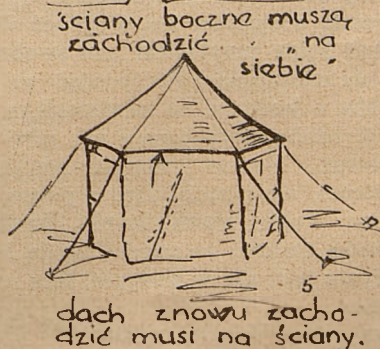 ściany boczne muszą
zachodzić „na
siebie"
5
dach znowu zacho-
dzić musi na ściany.